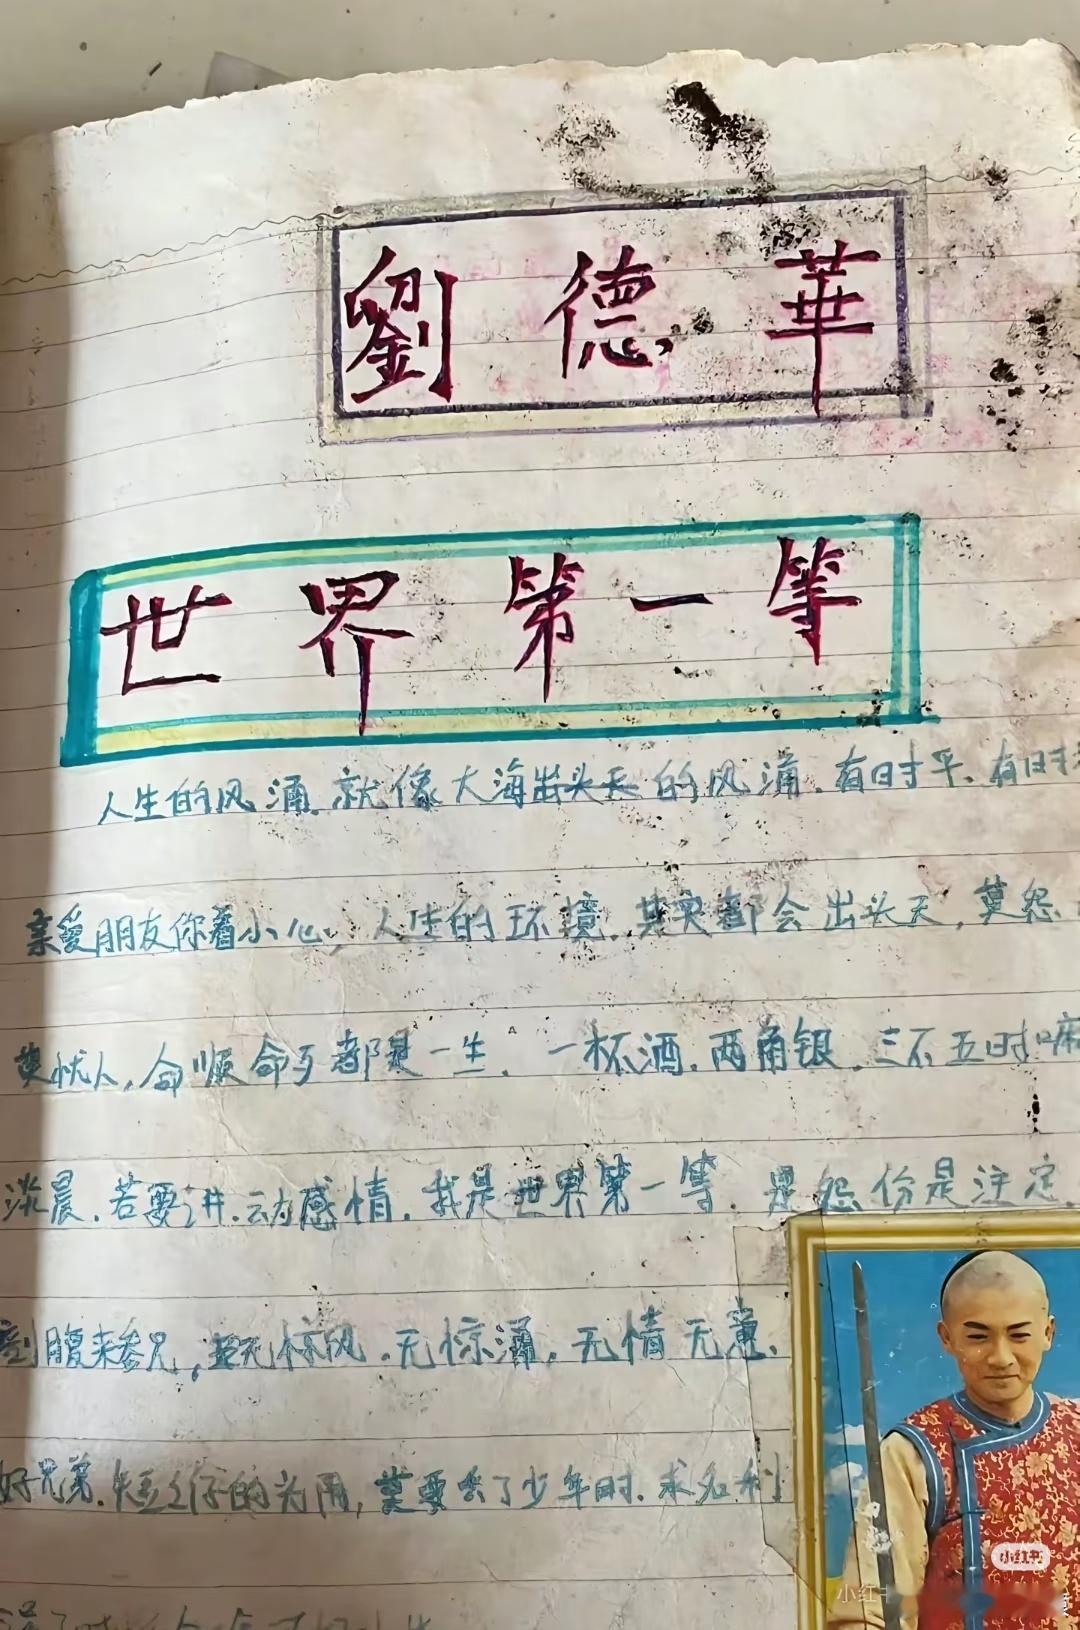 劉德華
世界第一等
人生的风涌.就像大海出头天的风涌.有时平.有时
亲爱朋友你着小心,人生的环境.其实都会出头天,莫怨
莫忧人,命顺命歹都是一生.一杯酒.两角银.三不五时嘛
淡晨.若要讲.动感情.我是世界第一等.是怨份是注定.
腹来参兄,无惊风.无惊涌,无情无意.
好兄弟.的为用,莫要丢了少年时.求名利
小红书
小红